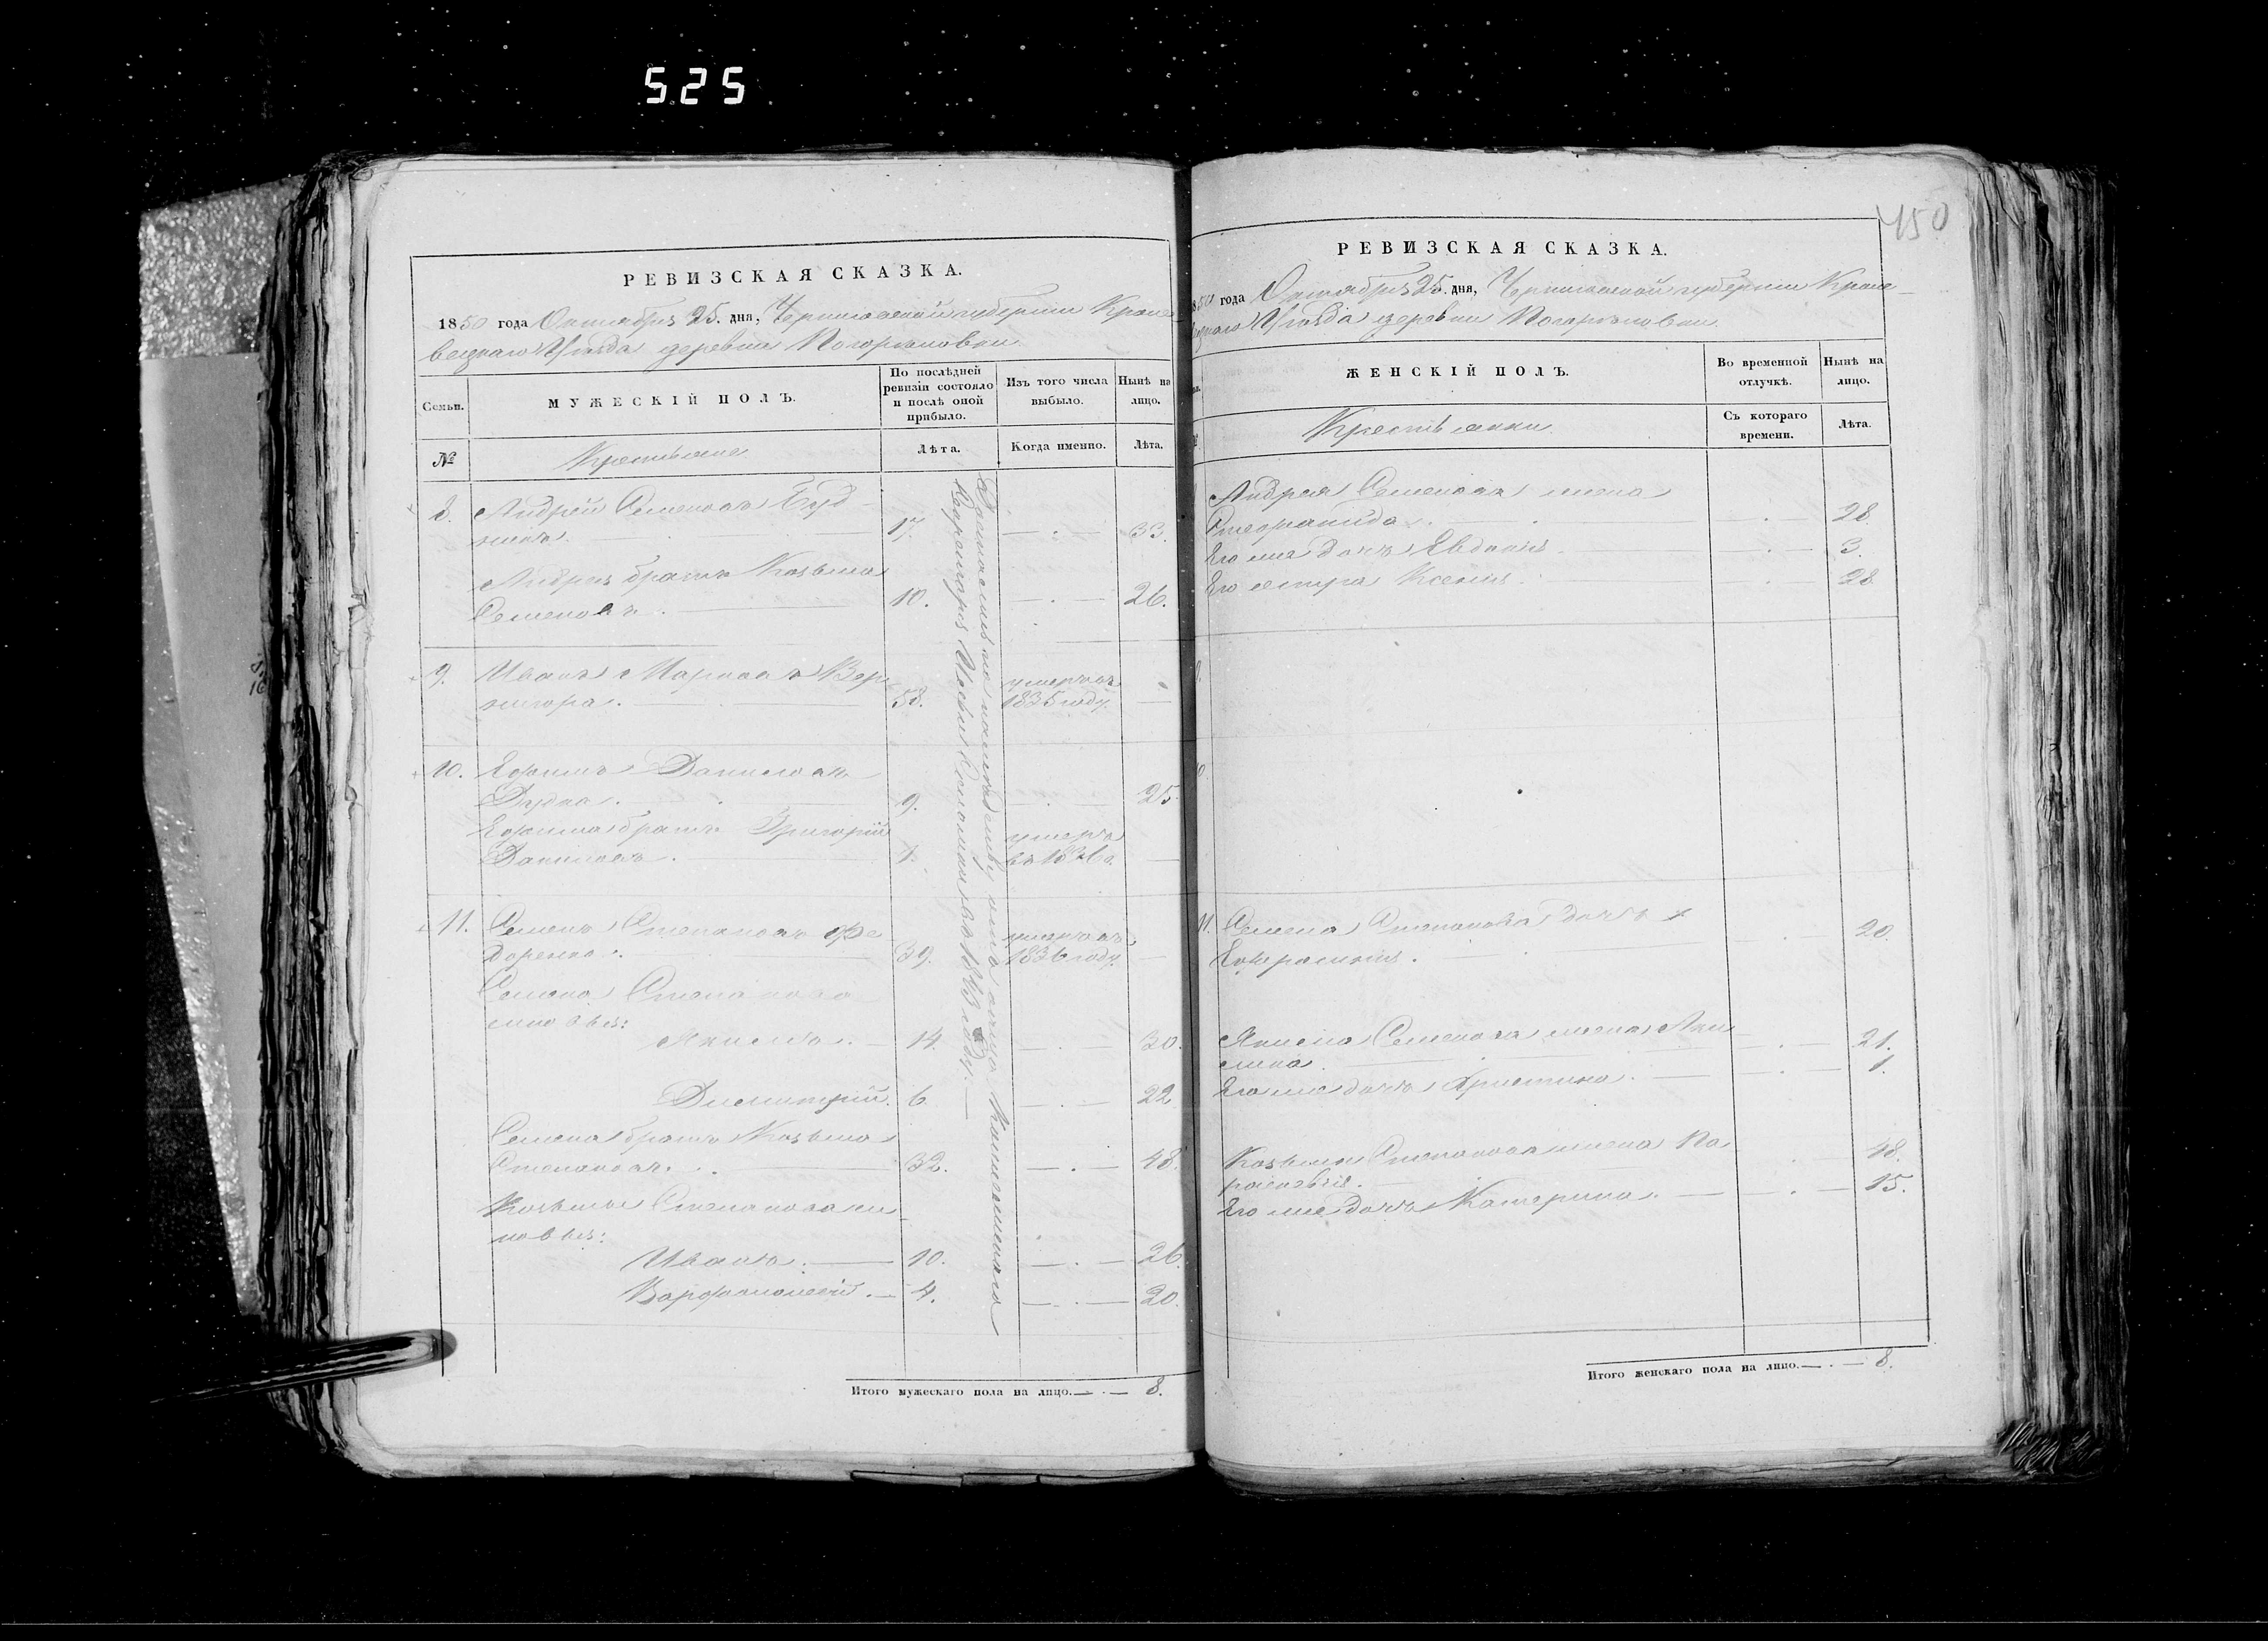 525
450
РЕВИЗСКАЯ СКАЗКА.
1850 года Октября 25. дня, Черниговской губерніи Кроле
вецкаго Уѣзда деревни Погорѣловки
Семьи.
МУЖЕСКІЙ ПОЛЪ.
По послѣдней
ревизіи состояло
и послѣ оной
прибыло.
Изъ того числа
выбыло.
Нынѣ на
лицо.
№
Крестьяне
Лѣта.
Когда именно.
Лѣта.
8. Андрей Семеновъ
17. — . — 33.
Андрея братъ Козьма
Семеновъ. 10. — . — 26.
9. Иванъ Марковъ Вер
нигора. 58. умеръ въ
1835 году. —
10. Ефимъ Даниловъ
Дудка. 9. — . — 25.
Ефима братъ Григорій
Даниловъ. 1. умеръ
въ 1836 г. —
11. Семенъ Степановъ Фе
доренко. 39. умеръ въ
1836 году. —
Семена Степанова
сыновья:
Якимъ. 14. — . — 30.
Димитрій. 6. — . — 22
Семена братъ Козьма
Степановъ. 32. — . — 48.
Козьмы Степанова сы
новья:
Иванъ. — 10. — . — 26.
Варфоломей. — 4. — . — 20.
въ 1843 году. —
Итого мужескаго пола на лицо. — . — 8.
РЕВИЗСКАЯ СКАЗКА.
1850 года Октября 25. дня, Черниговской губерніи Кроле-
вецкаго Уѣзда деревни Погорѣловки.
ЖЕНСКІЙ ПОЛЪ.
Во временной
отлучкѣ.
Нынѣ на
лицо.
Крестьянки.
Съ котораго
времени.
Лѣта.
Андрея Семенова жена
Степанида. — . — 28.
Его же дочь Евдокія — . — 3.
Его сестра Ксенія. — . — 28
11. Семена Степанова дочь
Ефросинія. — . — 20.
Якима Семенова жена Аки
лина. — . — 21.
Его же дочь Христина. — . — 1.
Козьмы Степанова жена Па
расковія. — . — 48.
Его же дочь Катерина. — . — 15.
Итого женскаго пола на лицо. — . — 8.